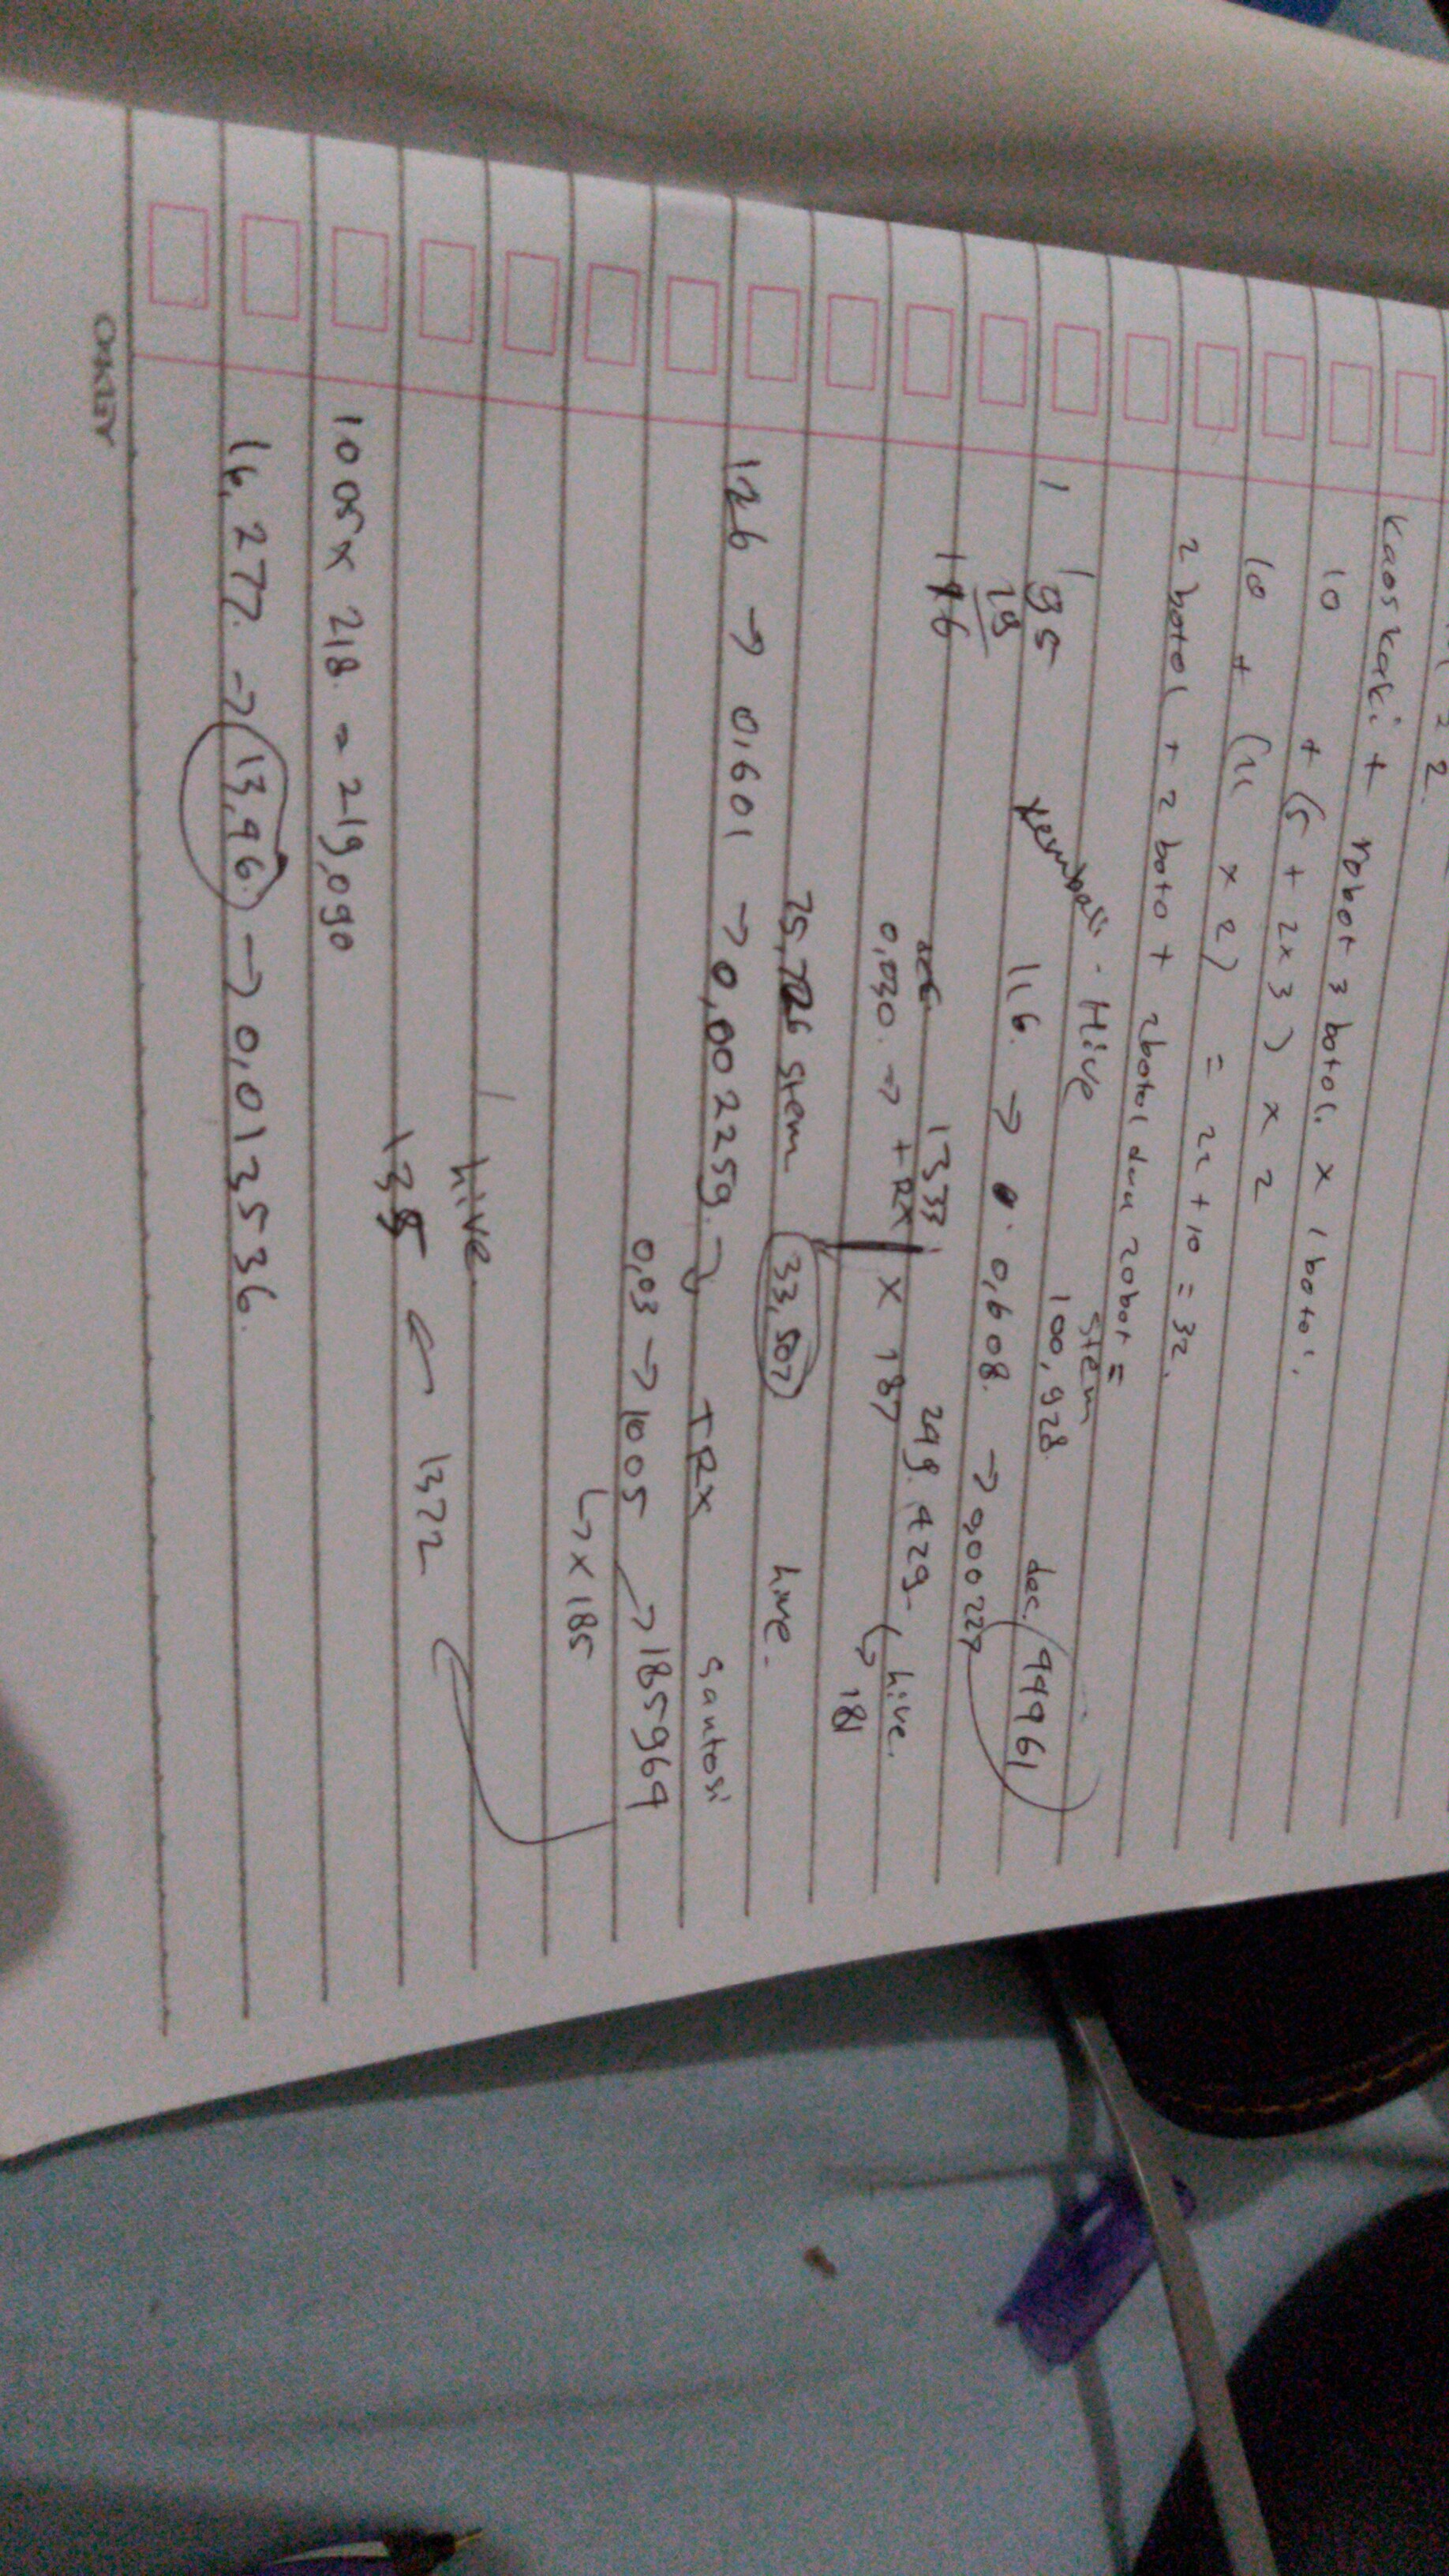 = 2.
kaos kaki + robot 3 botol x 1 botol.
10 + (5 + 2x3) x 2
10 + (11 x 2) = 22 + 10 = 32.
2 botol + 2 boto + 2botol dua robot =
Hive
Stem
1 95 100,928. dec. 94961
29 116. → 0,608. → 0,00227
1333 249.429 hive.
0,030. → TRX x 187 ↳ 181
25,726 stem 33,507 hive.
126 → 0,601 → 0,002259. → TRX Santosi
0,03 → 1005 → 185969
↳ x 185
hive.
135 ← 1372
1005 x 218 = 219,090
16,277. → 13,96. → 0,0135536.
OKEY